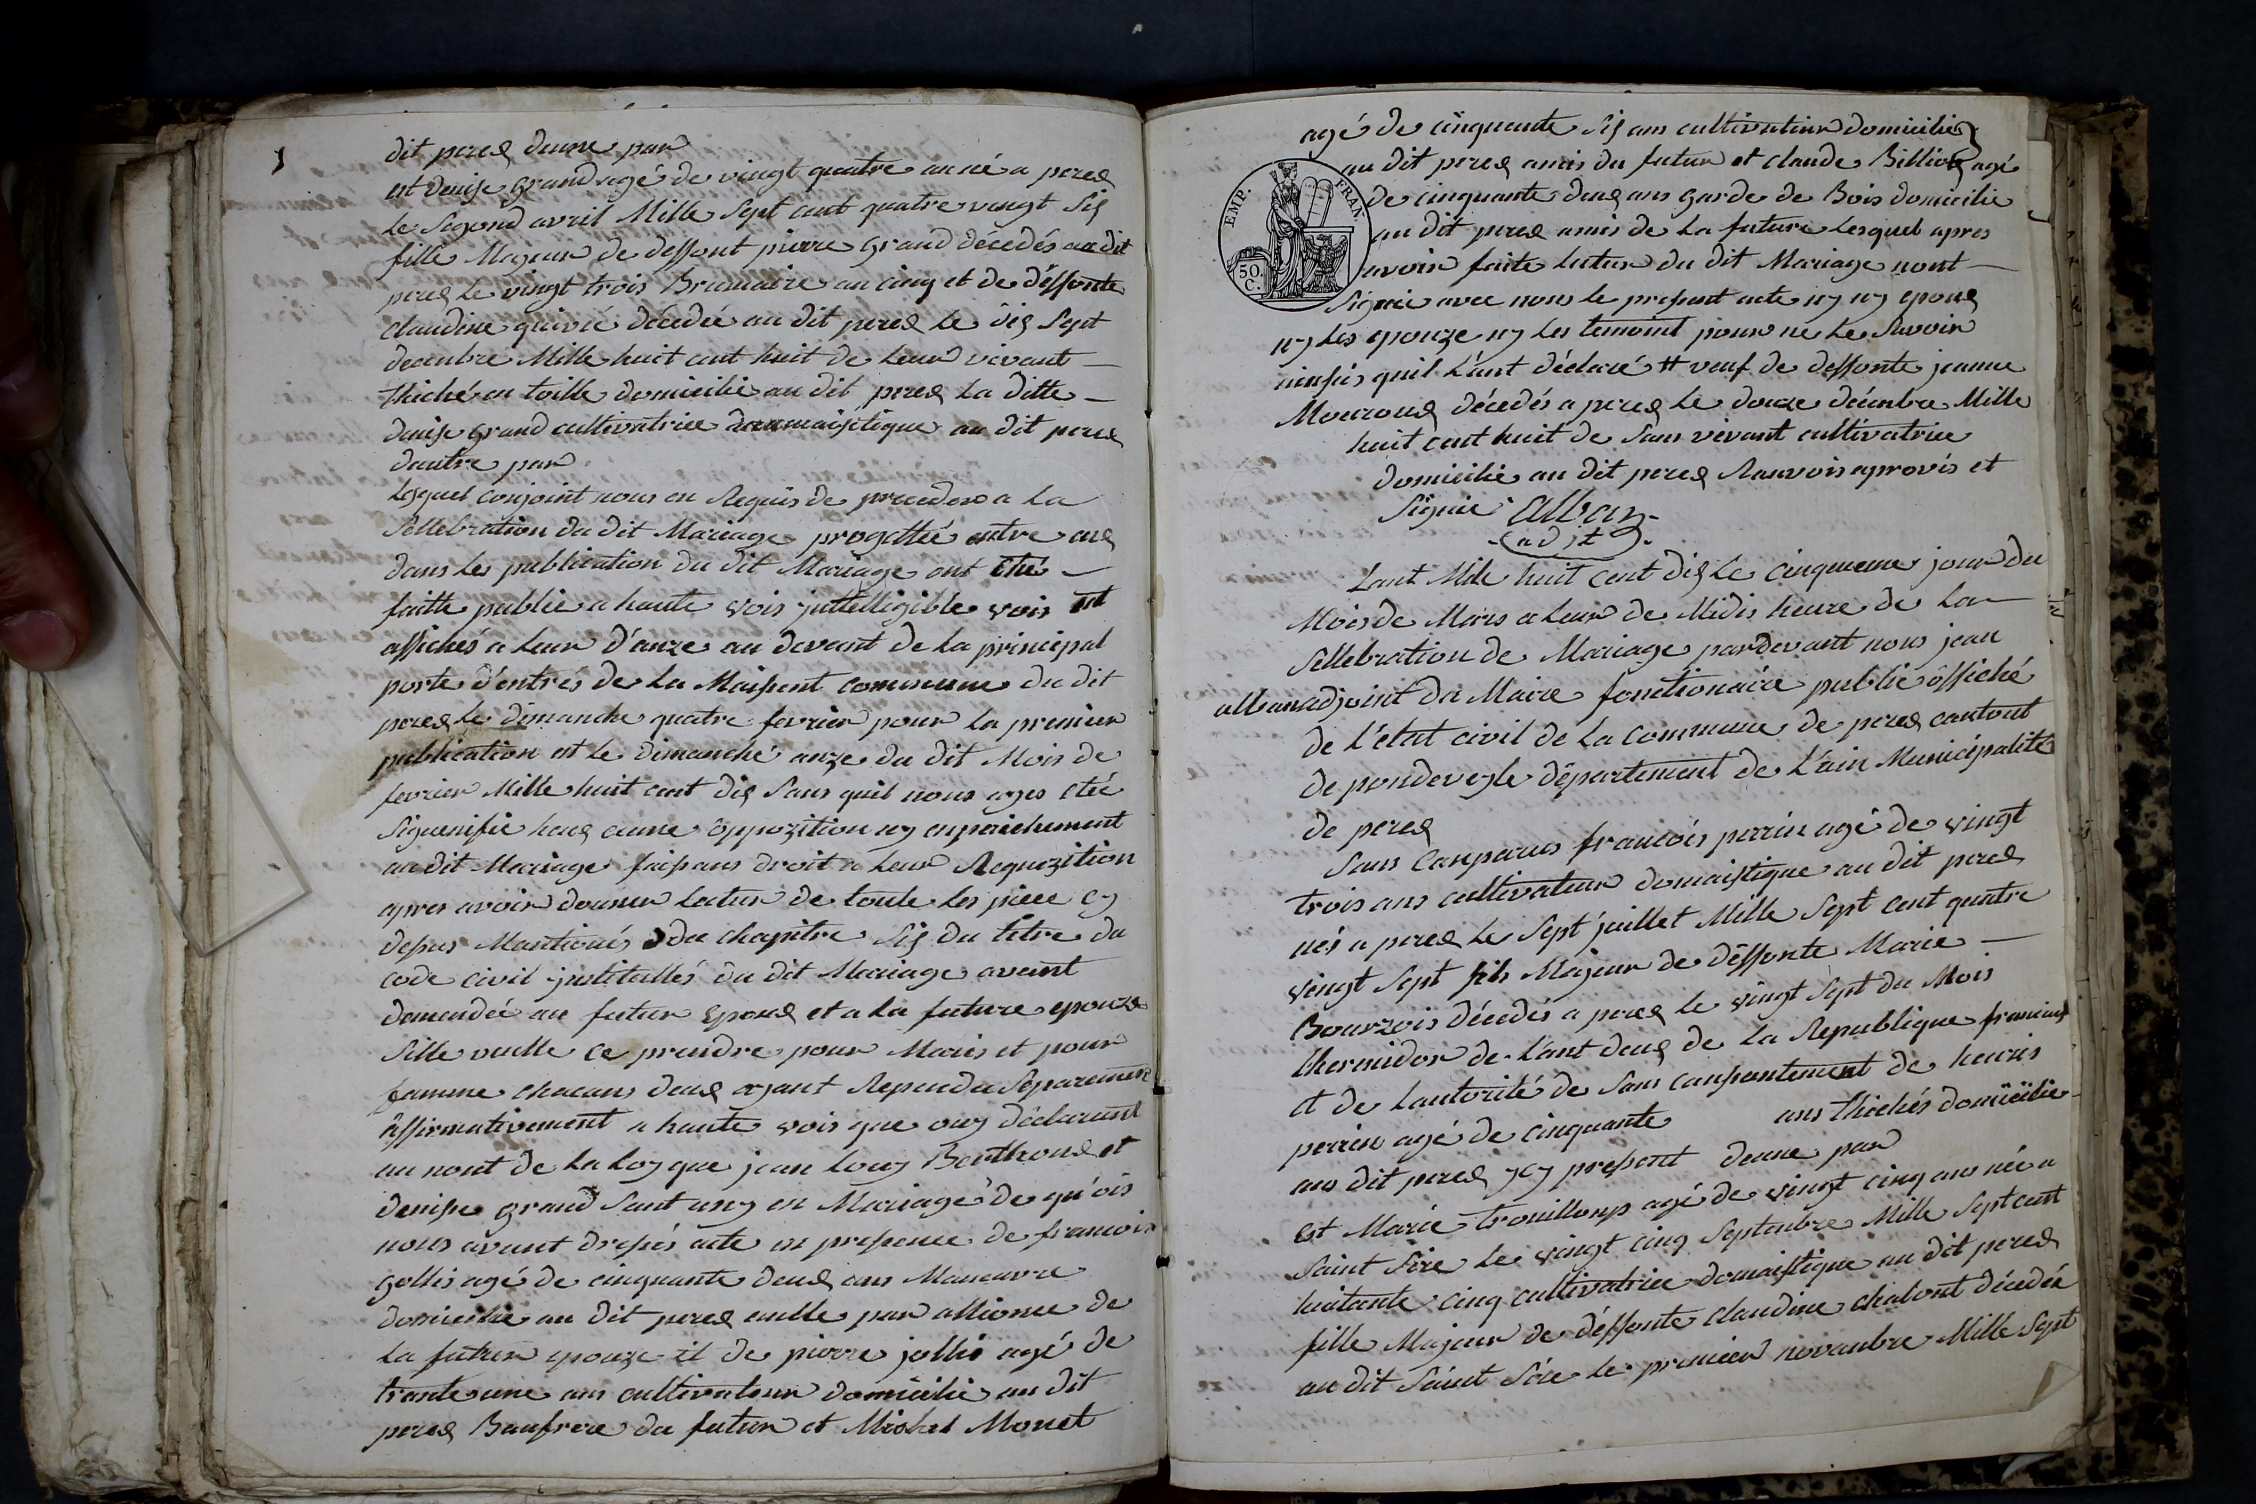 dit perex deune par
est denise grand agé de vingt quatre an né a perex
le segond avril Mille Sept cent quatre vingt Six
fille Majeur de deffont pierre grand décedés au dit
perex le vingt trois Brumaire an cinq et de déffonte
claudine quivié décedée au dit perex le dix Sept
decenbre Mille huit cent huit de leur vivant
thiché en toille domicilié au dit perex la ditte
denise grand cultivatrice domaistique au dit perex
dautre par
lesquel conjoint nous on Requis de proceder a la
Sellebration du dit Mariage progettée entre eux
dans les publication du dit Mariage ont été
faitte publié a haute vois juttelligible vois et
affichés a leur d'anze au devant de la principal
porte d'entrés de la Maisent commune du dit
perex le dimanche quatre fevrier pour la premier
publication et le dimanché anze du dit Mois de
fevrier Mille huit cent dix Sans quil nous ayes etée
Siguenifié heuq cune oppozition ny enpeichement
au dit Mariage faisans droit a leur Requezition
apres avoir donner lectur de toute les piece cy
depus Mantioués du chapitre Six du titre du
code civil justitullés du dit Mariage avent
demandée au futur epoux et a la future epouze
Sille vuelle ce prendre pour Maris et pour
famme chacuns deux ayant Reponda Séparement
affirmativement a haute vois que ouy déclarant
au nont de la loy que jean louy Berthoux et
denise grand Sant uny en Mariage de qu'ois
nous avant dresés acte en presence de francois
gollis agé de cinquante deux ans Maneuvre
domicilié au dit perex oncle par allience de
la futur epouze il de pierre jollis agé de
trante une ans cultivateur domicilié au dit
perex Baufrere du futur et Michel Monet
agé de cinquante Six ans cultivateur domicilié
au dit perex amis du futur et claude Billivé agé
de cinquante deux ans garde de Bois domicilié
au dit perex amis de la future lesquel apres
avoir faite lectur du dit Mariage nont
Signié avec nous le present acte ny ny epoux
ny les epouze ny les temoint pour ne le Savoir
ainsis quil l'ant déclaré # veuf de deffonte jeanne
Mouroux décedés a perex le douze décenbre Mille
huit cent huit de Sans vivant cultivatrice
domicilié au dit perex Ranvois aprovés et
Signié Alban
adjt
Lant Mile huit cent dix le cinquieme jour du
Mois de Mars a leur de Midis heure de la
Sellebration de Mariage pardevant nous jean
alban adjoint du Maire fonctionaire public offiché
de l'etat civil de la commune de perex cantont
de pondeveyle département de L'ain Municipalité
de perex
Sans Canparus francois perrin agé de vingt
trois ans cultivateur domaistique au dit perex
nés a perex le Sept juillet Mille Sept cent quatre
vingt Sept fils Majeur de déffonte Marie
Bourzois décedés a perex le vingt Sept du Mois
thermidor de l'ant deux de la Republique francaise
et de lautorité de Sans cansentement de heuris
perrin agé de cinquante ans thichés domicilié
au dit perex ycy present deune par
est Marie trouilloup agé de vingt cinq ans née a
Saint Sire le vingt cinq Septenbre Mille Sept cent
huitante cinq cultivatrice domaistique au dit perex
fille Majeur de déffonte claudine chalont décedée
au dit Saint Sire le premier novanbre Mille Sept
EMP. FRAN.
50. C.